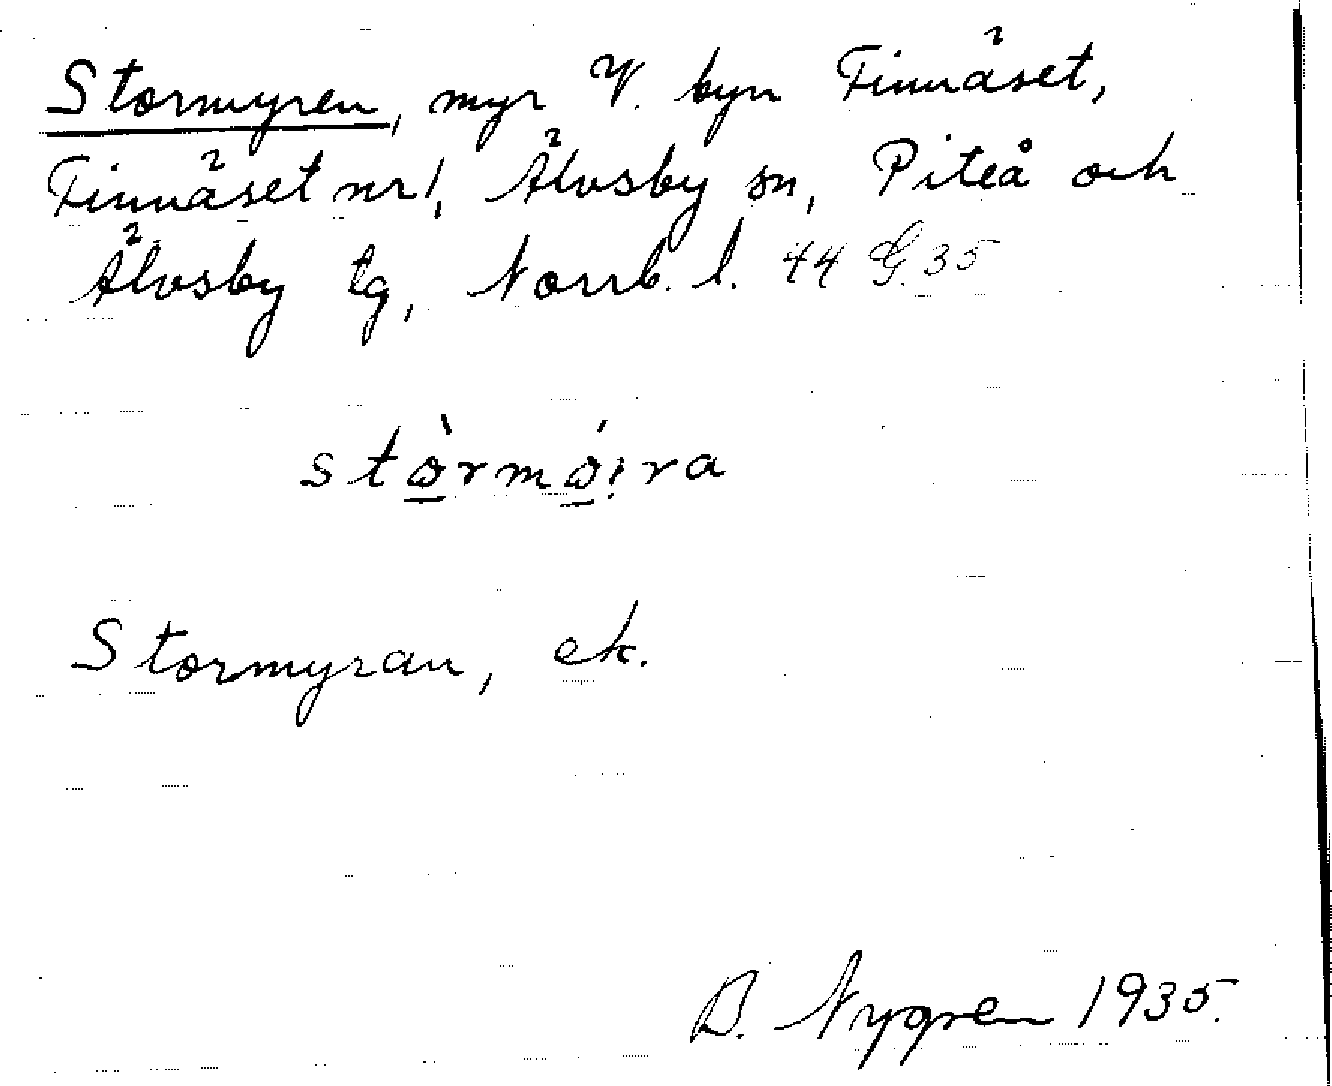 Stormyren, myr V. byn Finnäset,
Finnäset nr 1, Älvsby sn, Piteå och
Älvsby tg, Norrb. l. 44 G. 35
Stormyran, ek.
B. Nygren 1935.